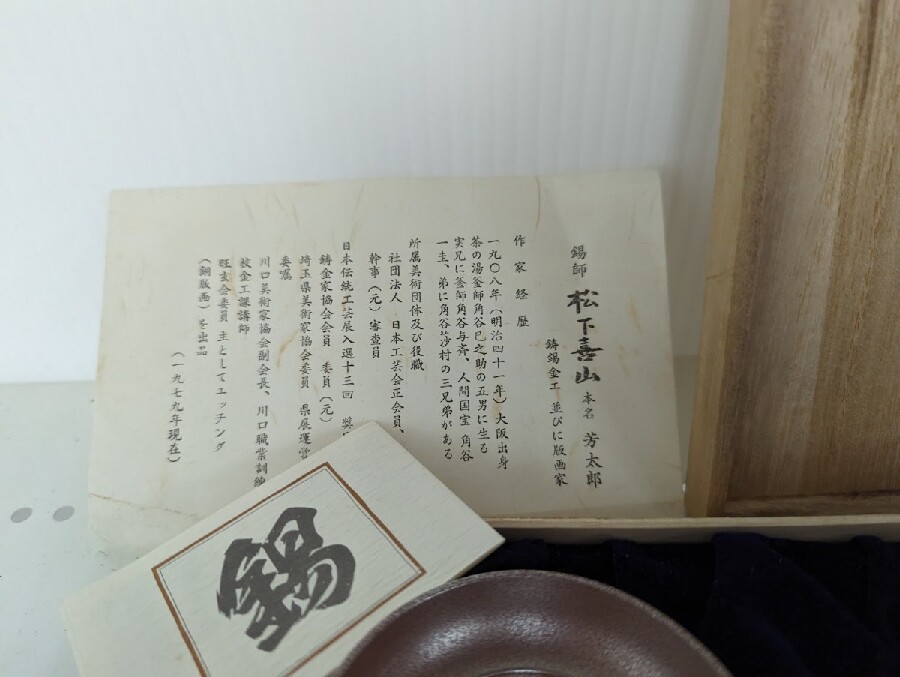 錫師 松下喜山 本名 芳太郎
鋳錫金工 並びに版画家
作家経歴
一九〇八年(明治四十一年)大阪出身
茶の湯釜師角谷巳之助の五男に生る
実兄に釜師角谷与斉、人間国宝 角谷
一圭、弟に角谷莎村の三兄弟がある
所属美術団体及び役職
社団法人 日本工芸会正会員、
幹事(元)審査員
日本伝統工芸展入選十三回
鋳金家協会会員 委員(元)
埼玉県美術家協会委員 県展運営
委嘱
川口美術家協会副会長、川口職業訓練
校金工課講師
旺玄会委員 主としてエッチング
(銅版画)を出品
(一九七九年現在)
錫